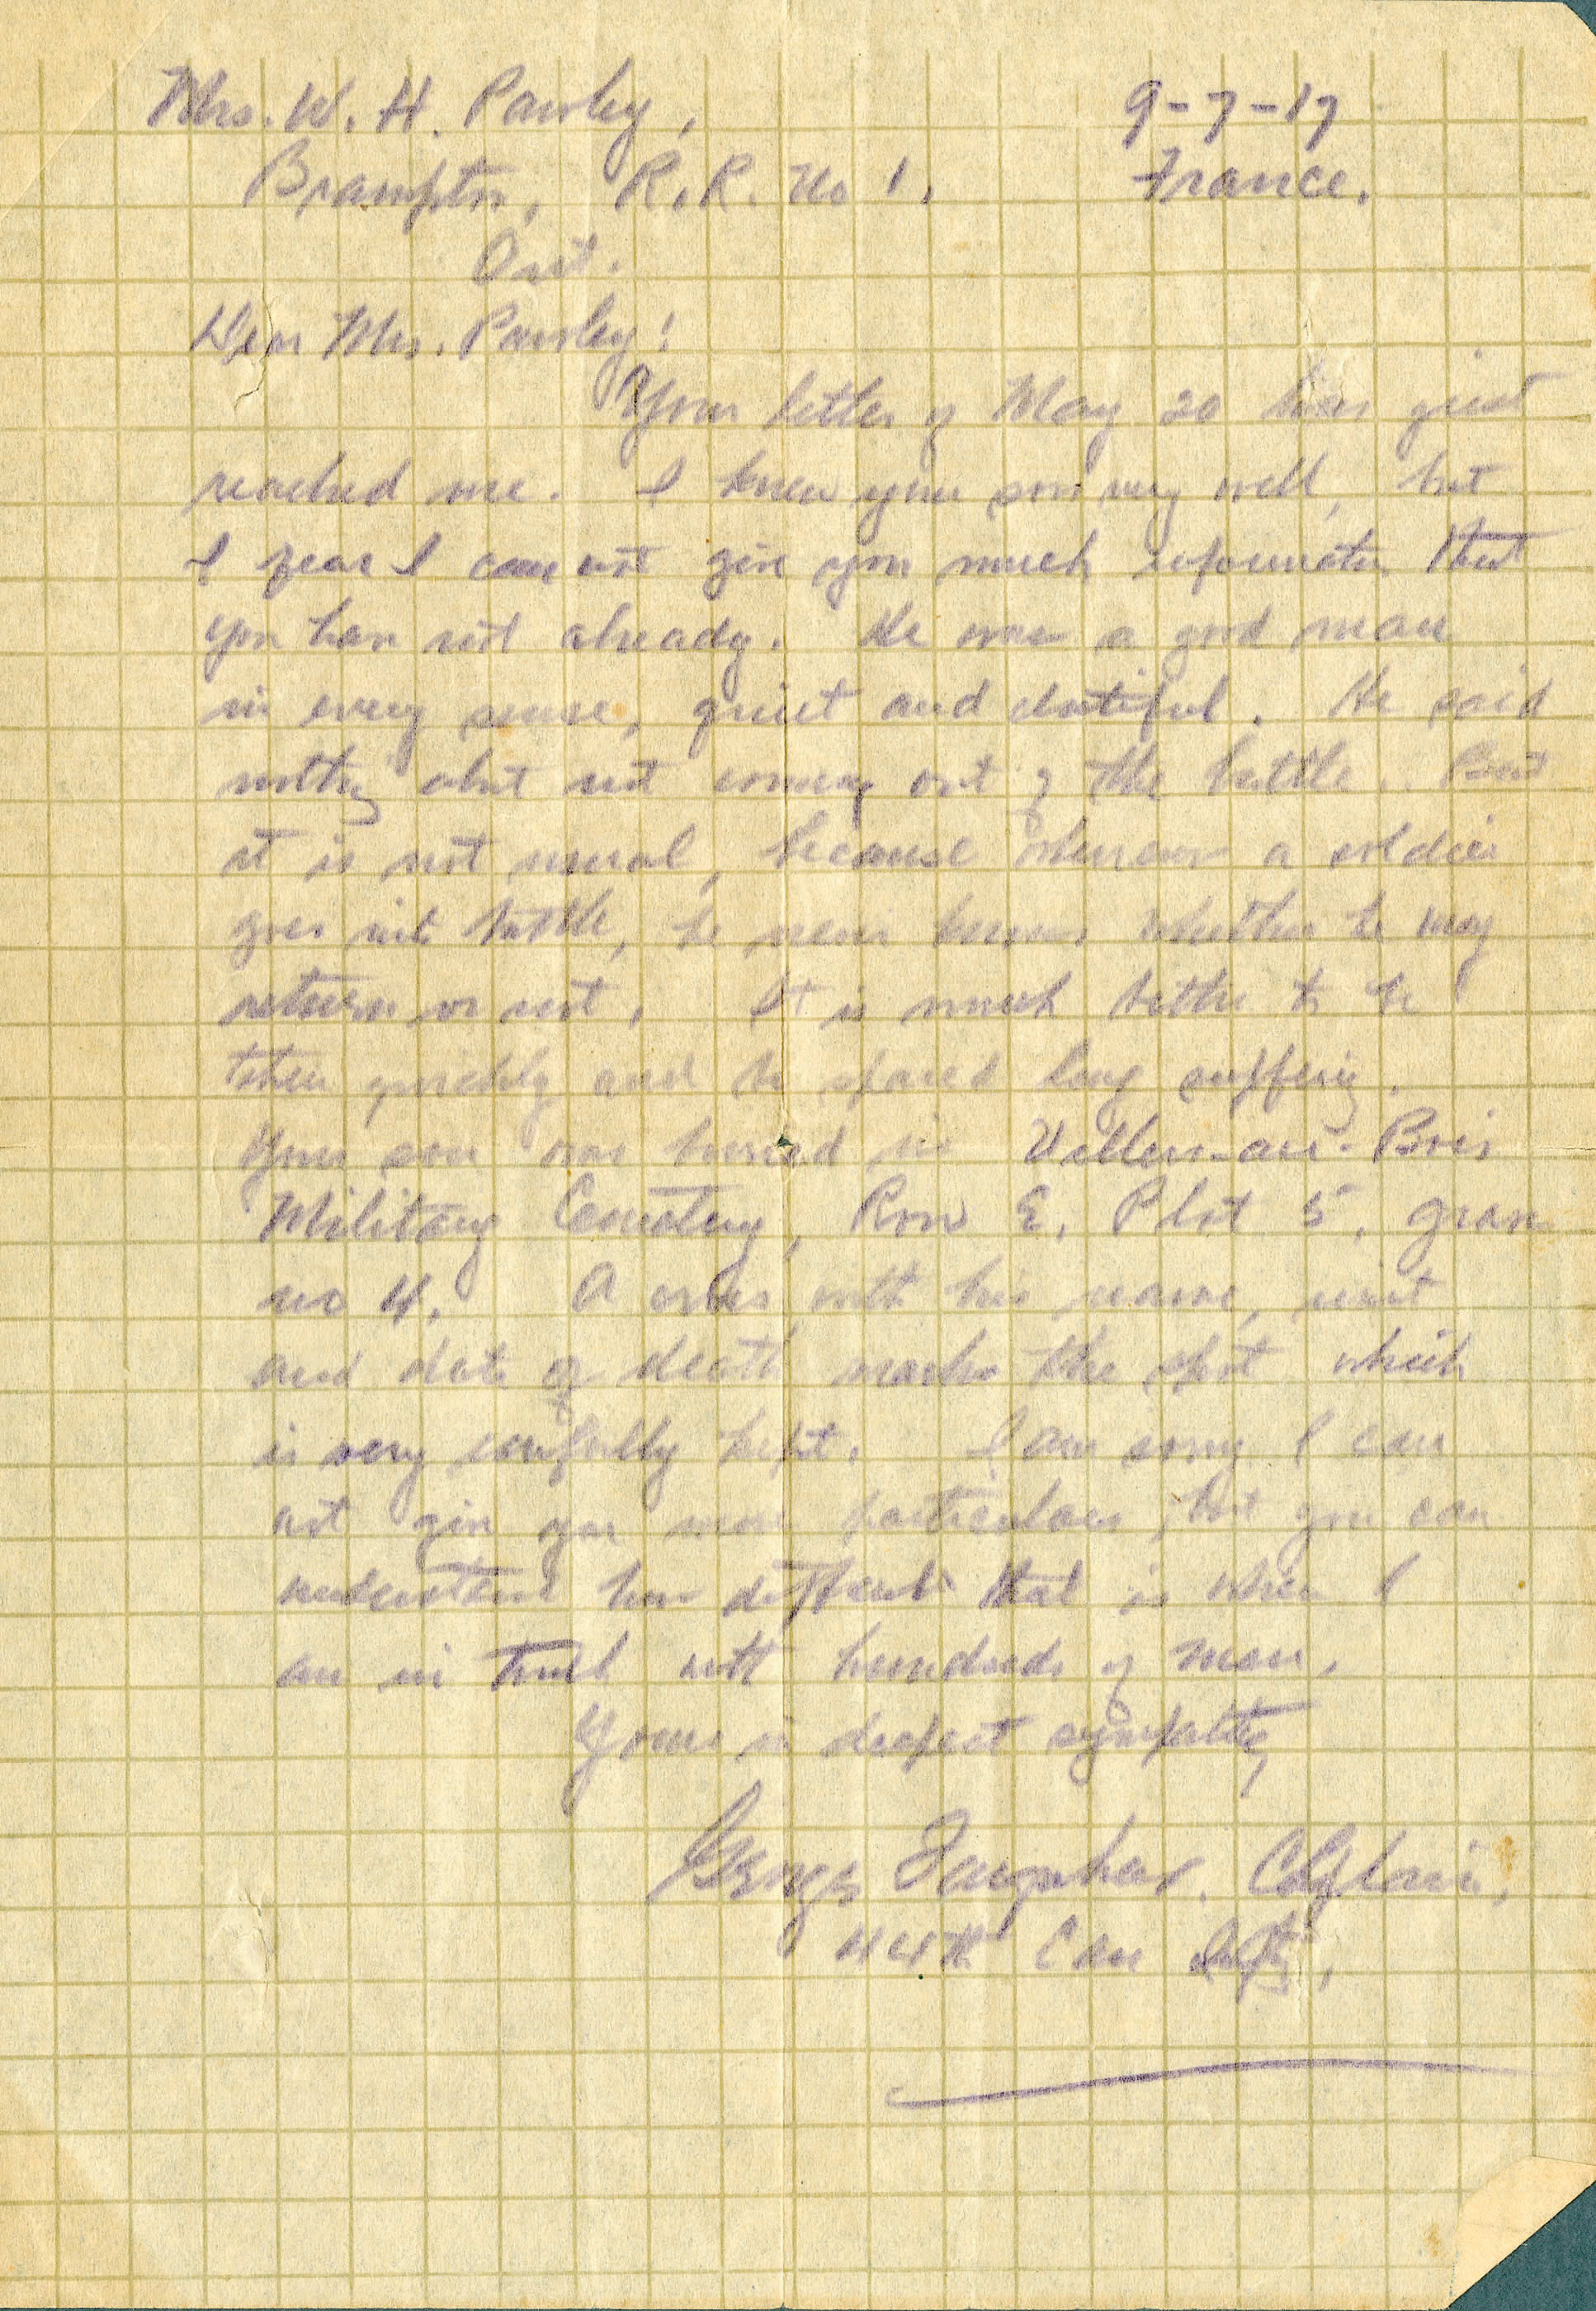 Mrs. W. H. Pawley, 9-7-17
Brampton, R.R. No 1. France.
Ont.
Dear Mrs. Pawley:
Your letter of May 20 has just
reached me. I knew your son very well, but
I fear I can not give you much information that
you have not already. He was a good man
in every sense, quiet and dutiful. He said
nothing about not coming out of the battle. But
it is not usual, because whenever a soldier
goes into battle, he never knows whether he may
return or not. It is much better to be
taken quickly and be spared long suffering.
Your son was buried in Villers-au-Bois
Military Cemetery, Row E, Plot 5, grave
no 4. A cross with his name, unit
and date of death marks the spot which
is very carefully kept. I am sorry I can
not give you more particulars, but you can
understand how difficult that is when I
am in touch with hundreds of men.
Yours in deepest sympathy,
George Farquhar. Chaplain,
Can Inf,